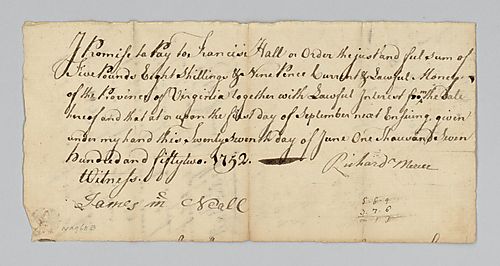 I Promise to Pay to Francis Hall or Order the Just and full sum of
Five Pounds Eight Shillings & Nine Pence Current & Lawful Money
of the Province of Virginia together with Lawful Interest from the Date
hereof and that at or upon the first day of September next Ensuing, given
under my hand this Twenty Seventh day of June One Thousand Seven
Hundred and fifty two. 1752.
Richard
Witness.
James Mc Neall
5.8.9
3.7.6